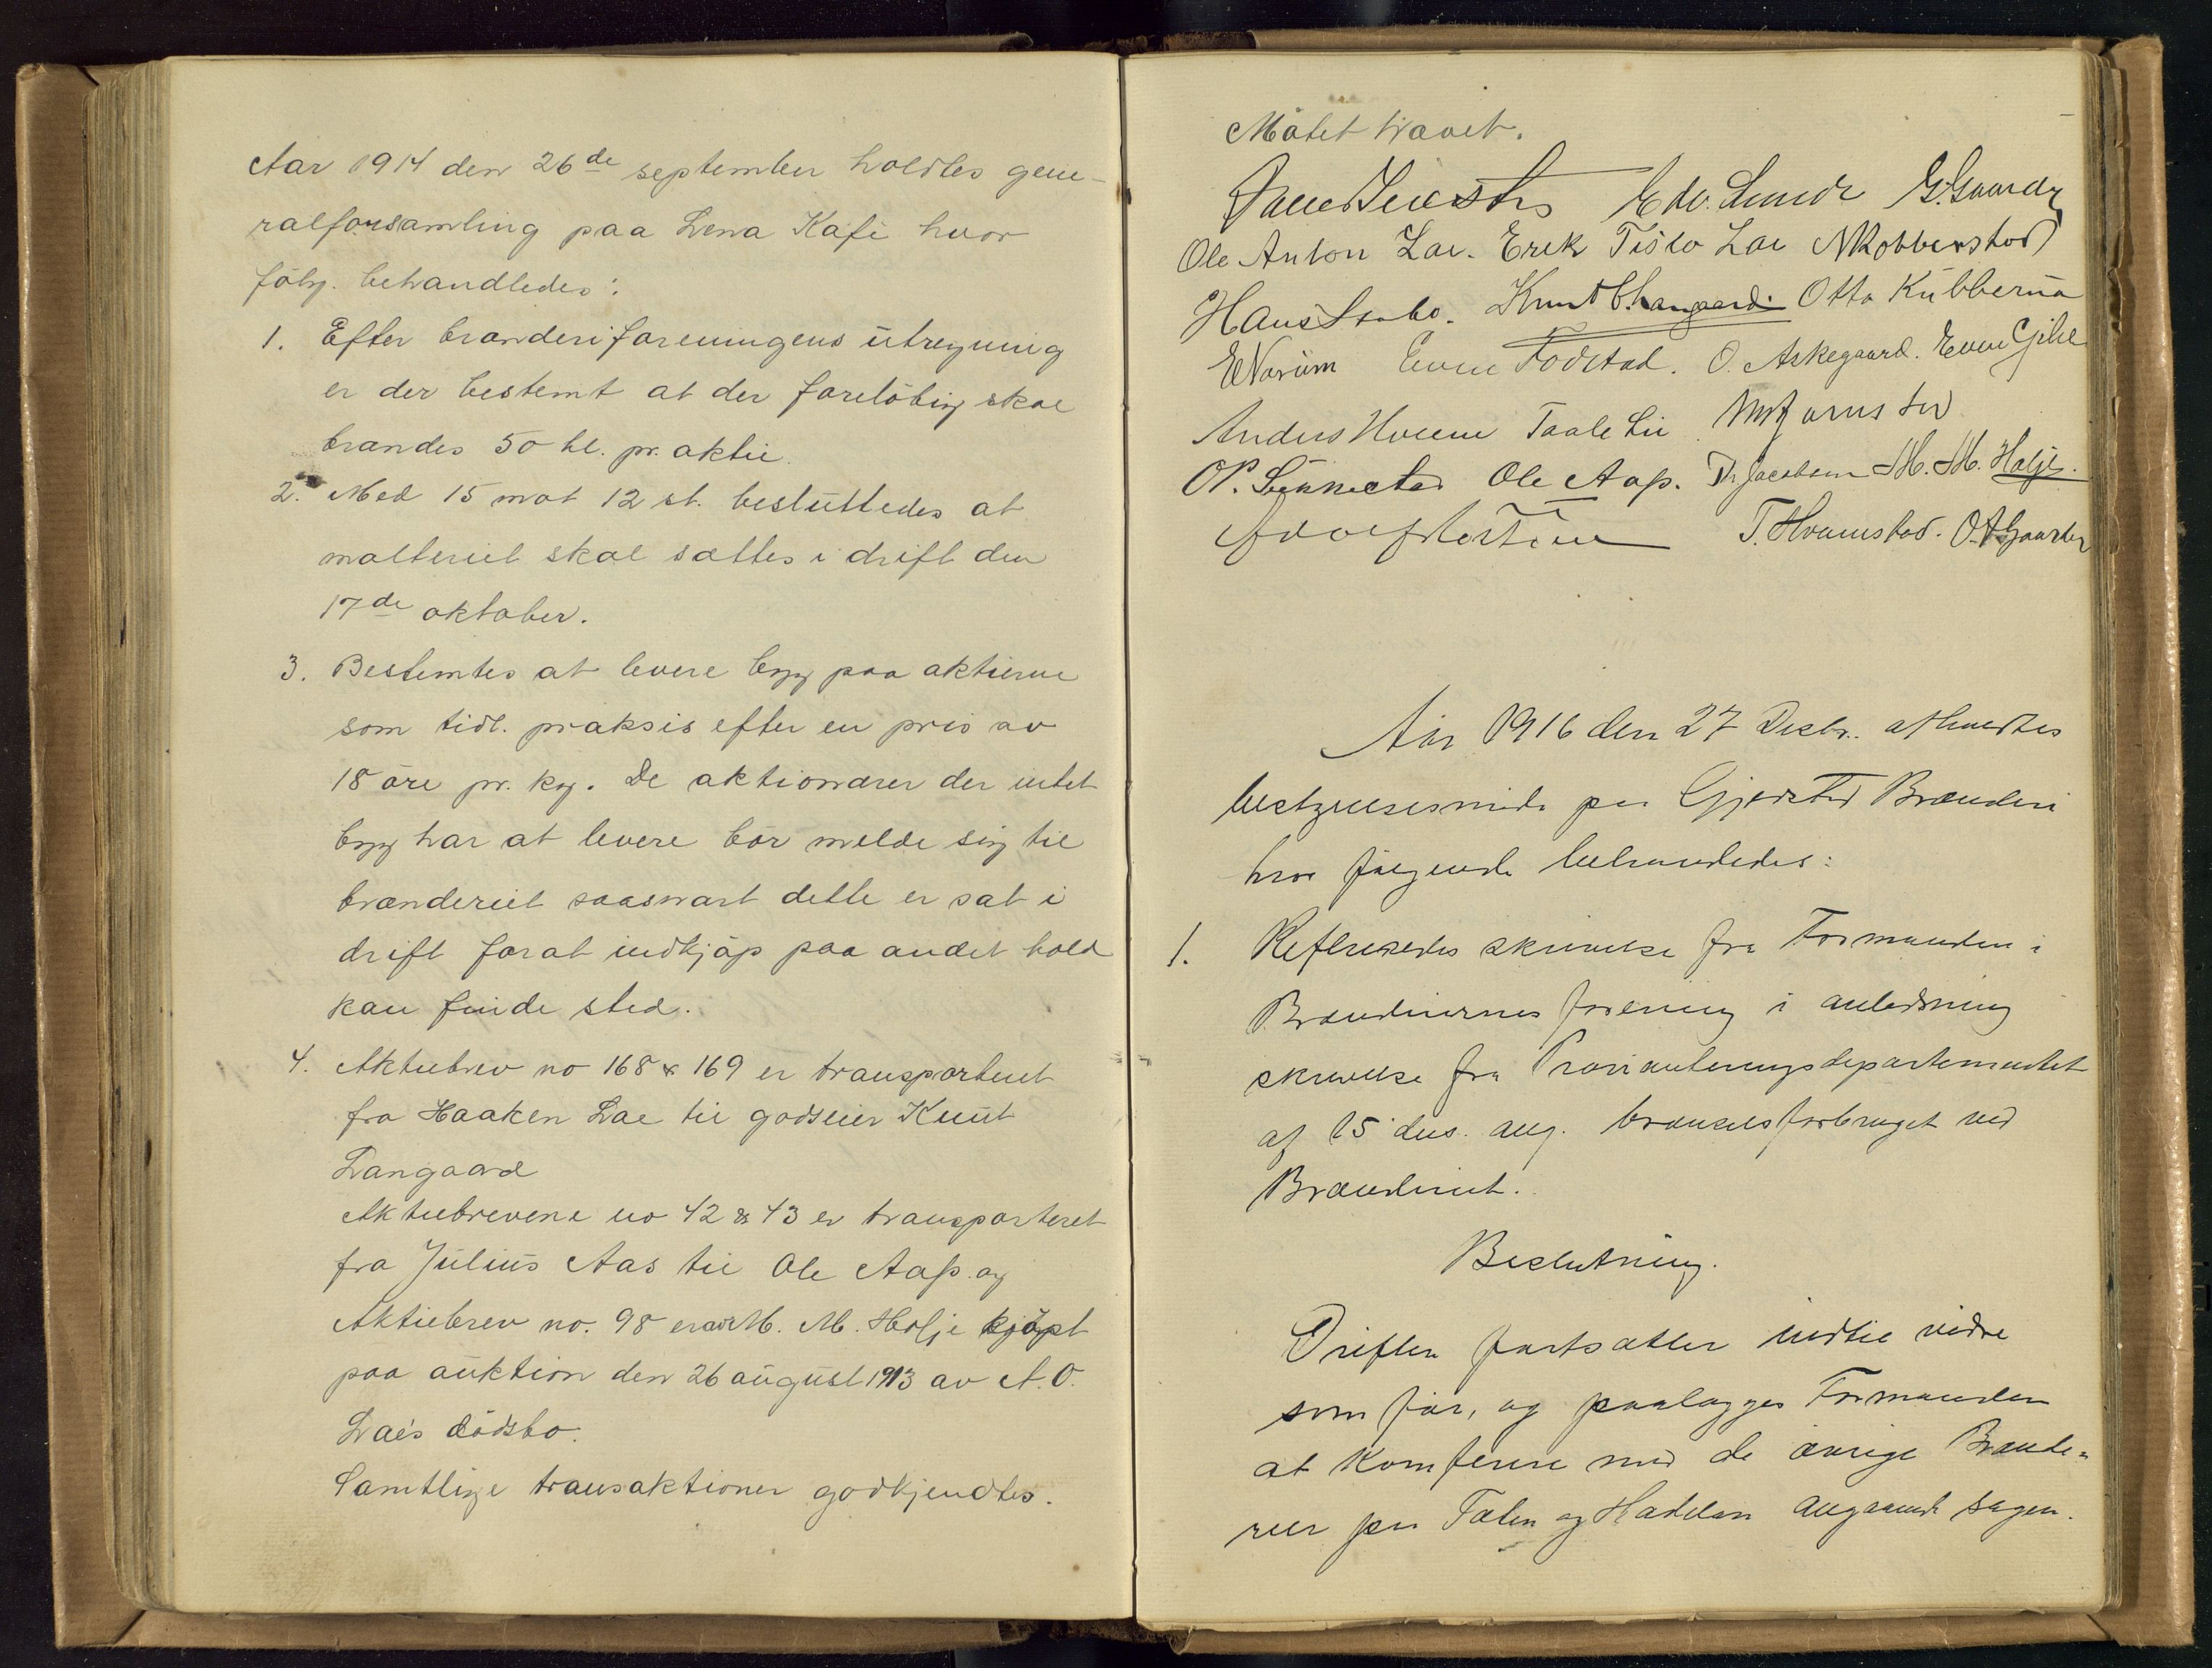 Aar 1914 den 26de september holdtes gene-
ralforsamling paa Lena Kafe hvor
følg. behandledes:
1. Efter brænderiforeningens utregning
er der bestemt at der foreløbig skal
brændes 50 hl. pr. aktie.
2. Med 15 mot 12 st. besluttedes at
malteriet skal sættes i drift den
17de oktober.
3. Bestemtes at levere byg paa aktierne
som tidl. praksis efter en pris av
18 øre pr. kg. De aktionærer der intet
byg har at levere bør melde sig til
brænderiet saasnart dette er sat i
drift forat indkjøp paa andet hold
kan finde sted.
4. Aktiebrev no 168 & 169 er transporteret
fra Haaken Lae til godseier Knut
Langaard
Aktiebrevene no 42 & 43 er transporteret
fra Julius Aas til Ole Aas. og
Aktiebrev no. 98 er av M. M. Holje kjøpt
paa auktion den 26 august 1913 av A. O.
Lae's dødsbo.
Samtlige transaktioner godkjendtes.
Møtet hævet.
Edv. Lunde G. Gaarder
Ole Anton Lae. Erik Fiskvo Lae N Kobberstad
Hans Knut Langaard. Otto Kubberud
E Narum Even Fodstad. O. Askegaard. Even Gihle
Anders Hveem Taale Lie
O P. Ole Aas. Th Jacobsen M. M. Holje.
T. Hvamstad. O. A Gaarder
Aar 1916 den 27 Decbr. afholdtes
bestyrelsesmøde paa Gjøvsted Brænderi
hvor følgende behandledes:
1. Refereredes skrivelse fra Formanden i
Brænderiernes forening i anledning
skrivelse fra Provianteringsdepartementet
af 15 ds. ang. brænselsforbruget ved
Brænderiet.
Beslutning.
Driften fortsætter indtil videre
som før, og paalægges Formanden
at konferere med de øvrige Brænde-
rier paa Toten og Hadeland angaaende sagen.